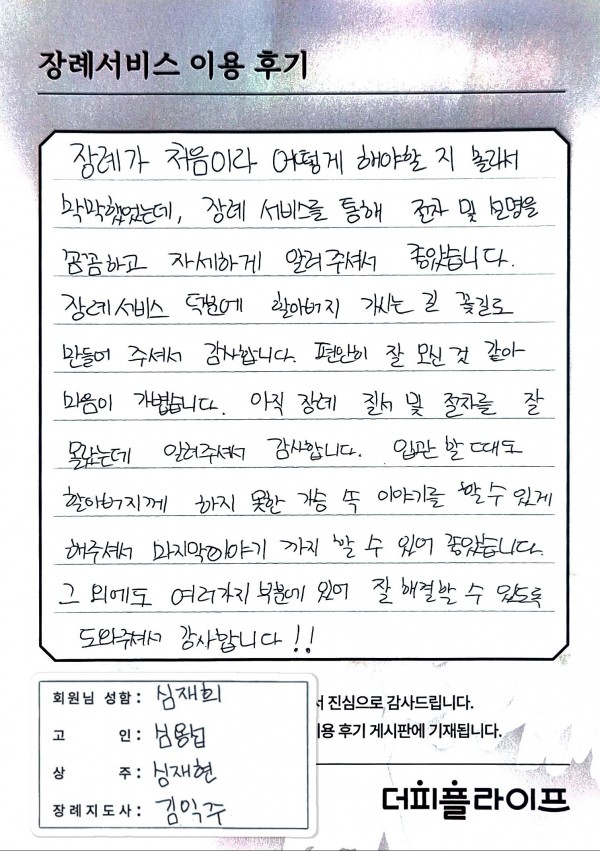 장례서비스 이용 후기
장례가 처음이라 어떻게 해야할 지 몰라서
막막했었는데, 장례 서비스를 통해 절차 및 설명을
꼼꼼하고 자세하게 알려주셔서 좋았습니다.
장례서비스 덕분에 할아버지 가시는 길 꽃길로
만들어 주셔서 감사합니다. 편안히 잘 모신 것 같아
마음이 가볍습니다. 아직 장례 질서 및 절차를 잘
몰랐는데 알려주셔서 감사합니다. 입관 할 때도
할아버지께 하지 못한 가슴 속 이야기를 할 수 있게
해주셔서 마지막이야기 까지 할 수 있어 좋았습니다.
그 외에도 여러가지 부분에 있어 잘 해결할 수 있도록
도와주셔서 감사합니다!!
서 진심으로 감사드립니다.
이용 후기 게시판에 기재됩니다.
회원님 성함 : 심재희
고 인 : 심용섭
상 주 : 심재현
장례지도사 : 김익주
더피플라이프